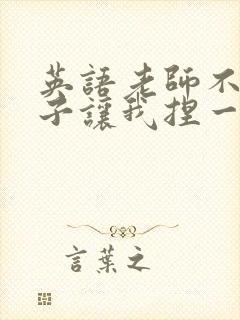 英語老師不
子讓我捏一
言葉之